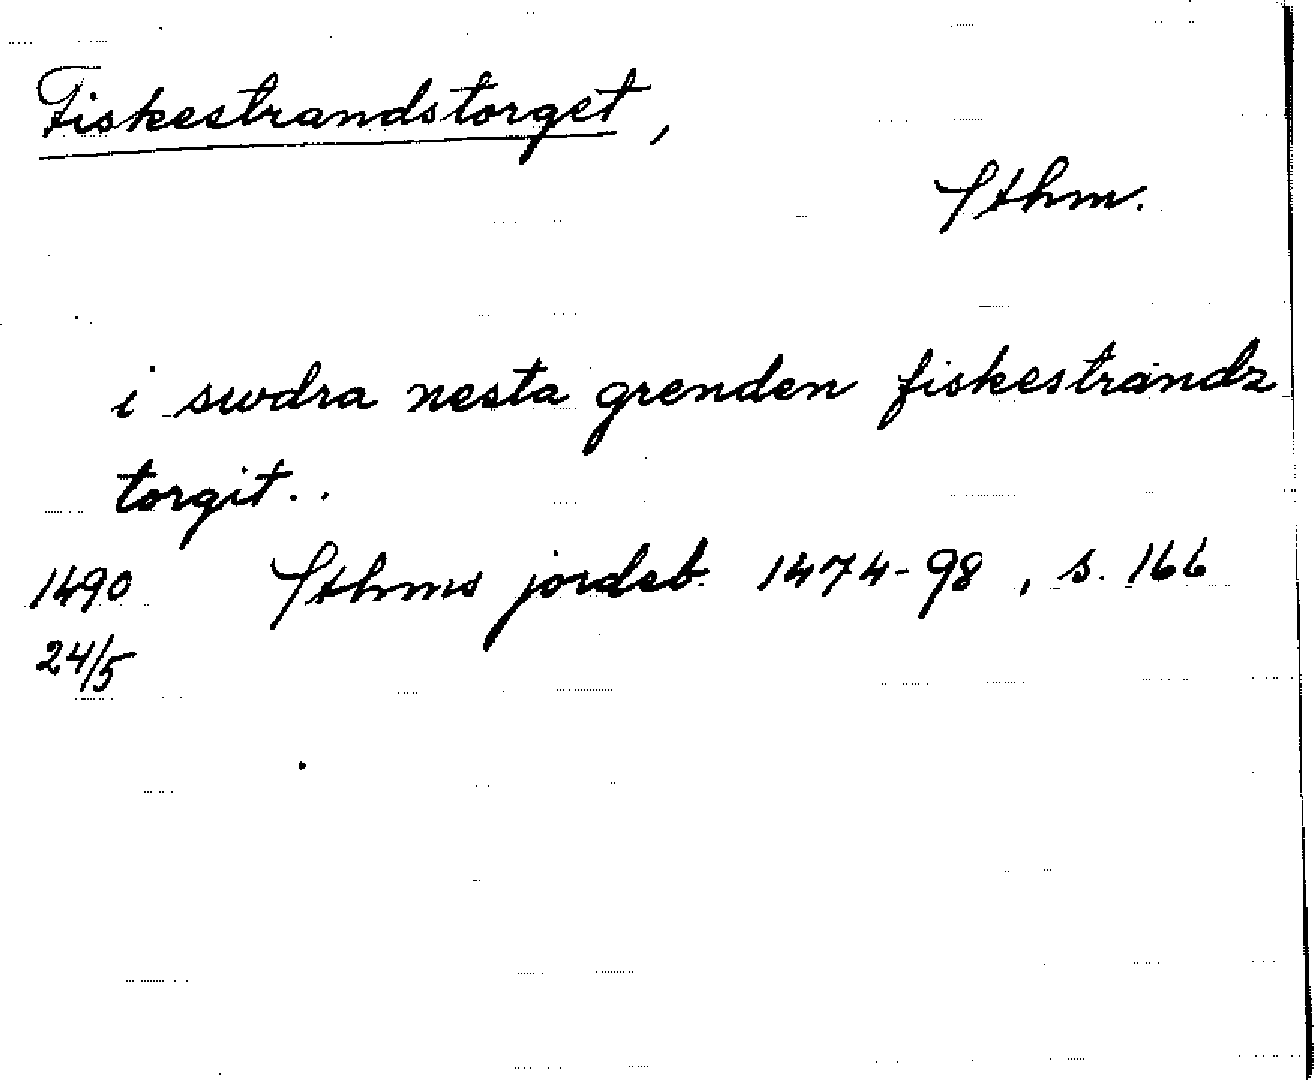 Fiskestrandstorget,
Sthm.
i swdra nesta grenden fiskestrandz
torgit..
1490 Sthms jordeb. 1474-98, s. 166
24/5